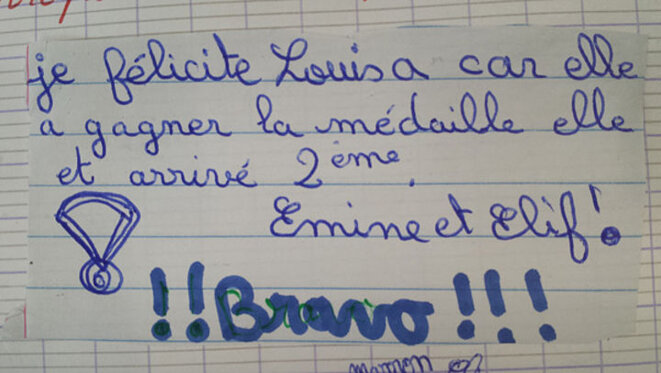 je félicite Louisa car elle
a gagner la médaille elle
et arrivé 2ème.
Emine et Elif !
!! Bravo !!!
maman